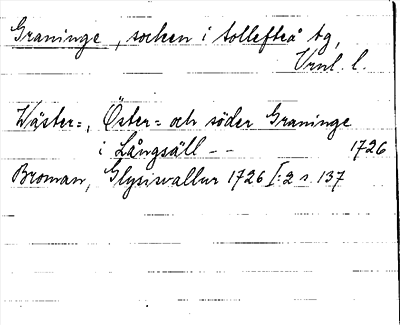 Graninge, socken i Sollefteå tg,
Vrnl. l.
Wäster=, Öster= och söder Graninge
i Långsäll – – 1726
Broman, Glysisvallur 1726 I:2 s. 137